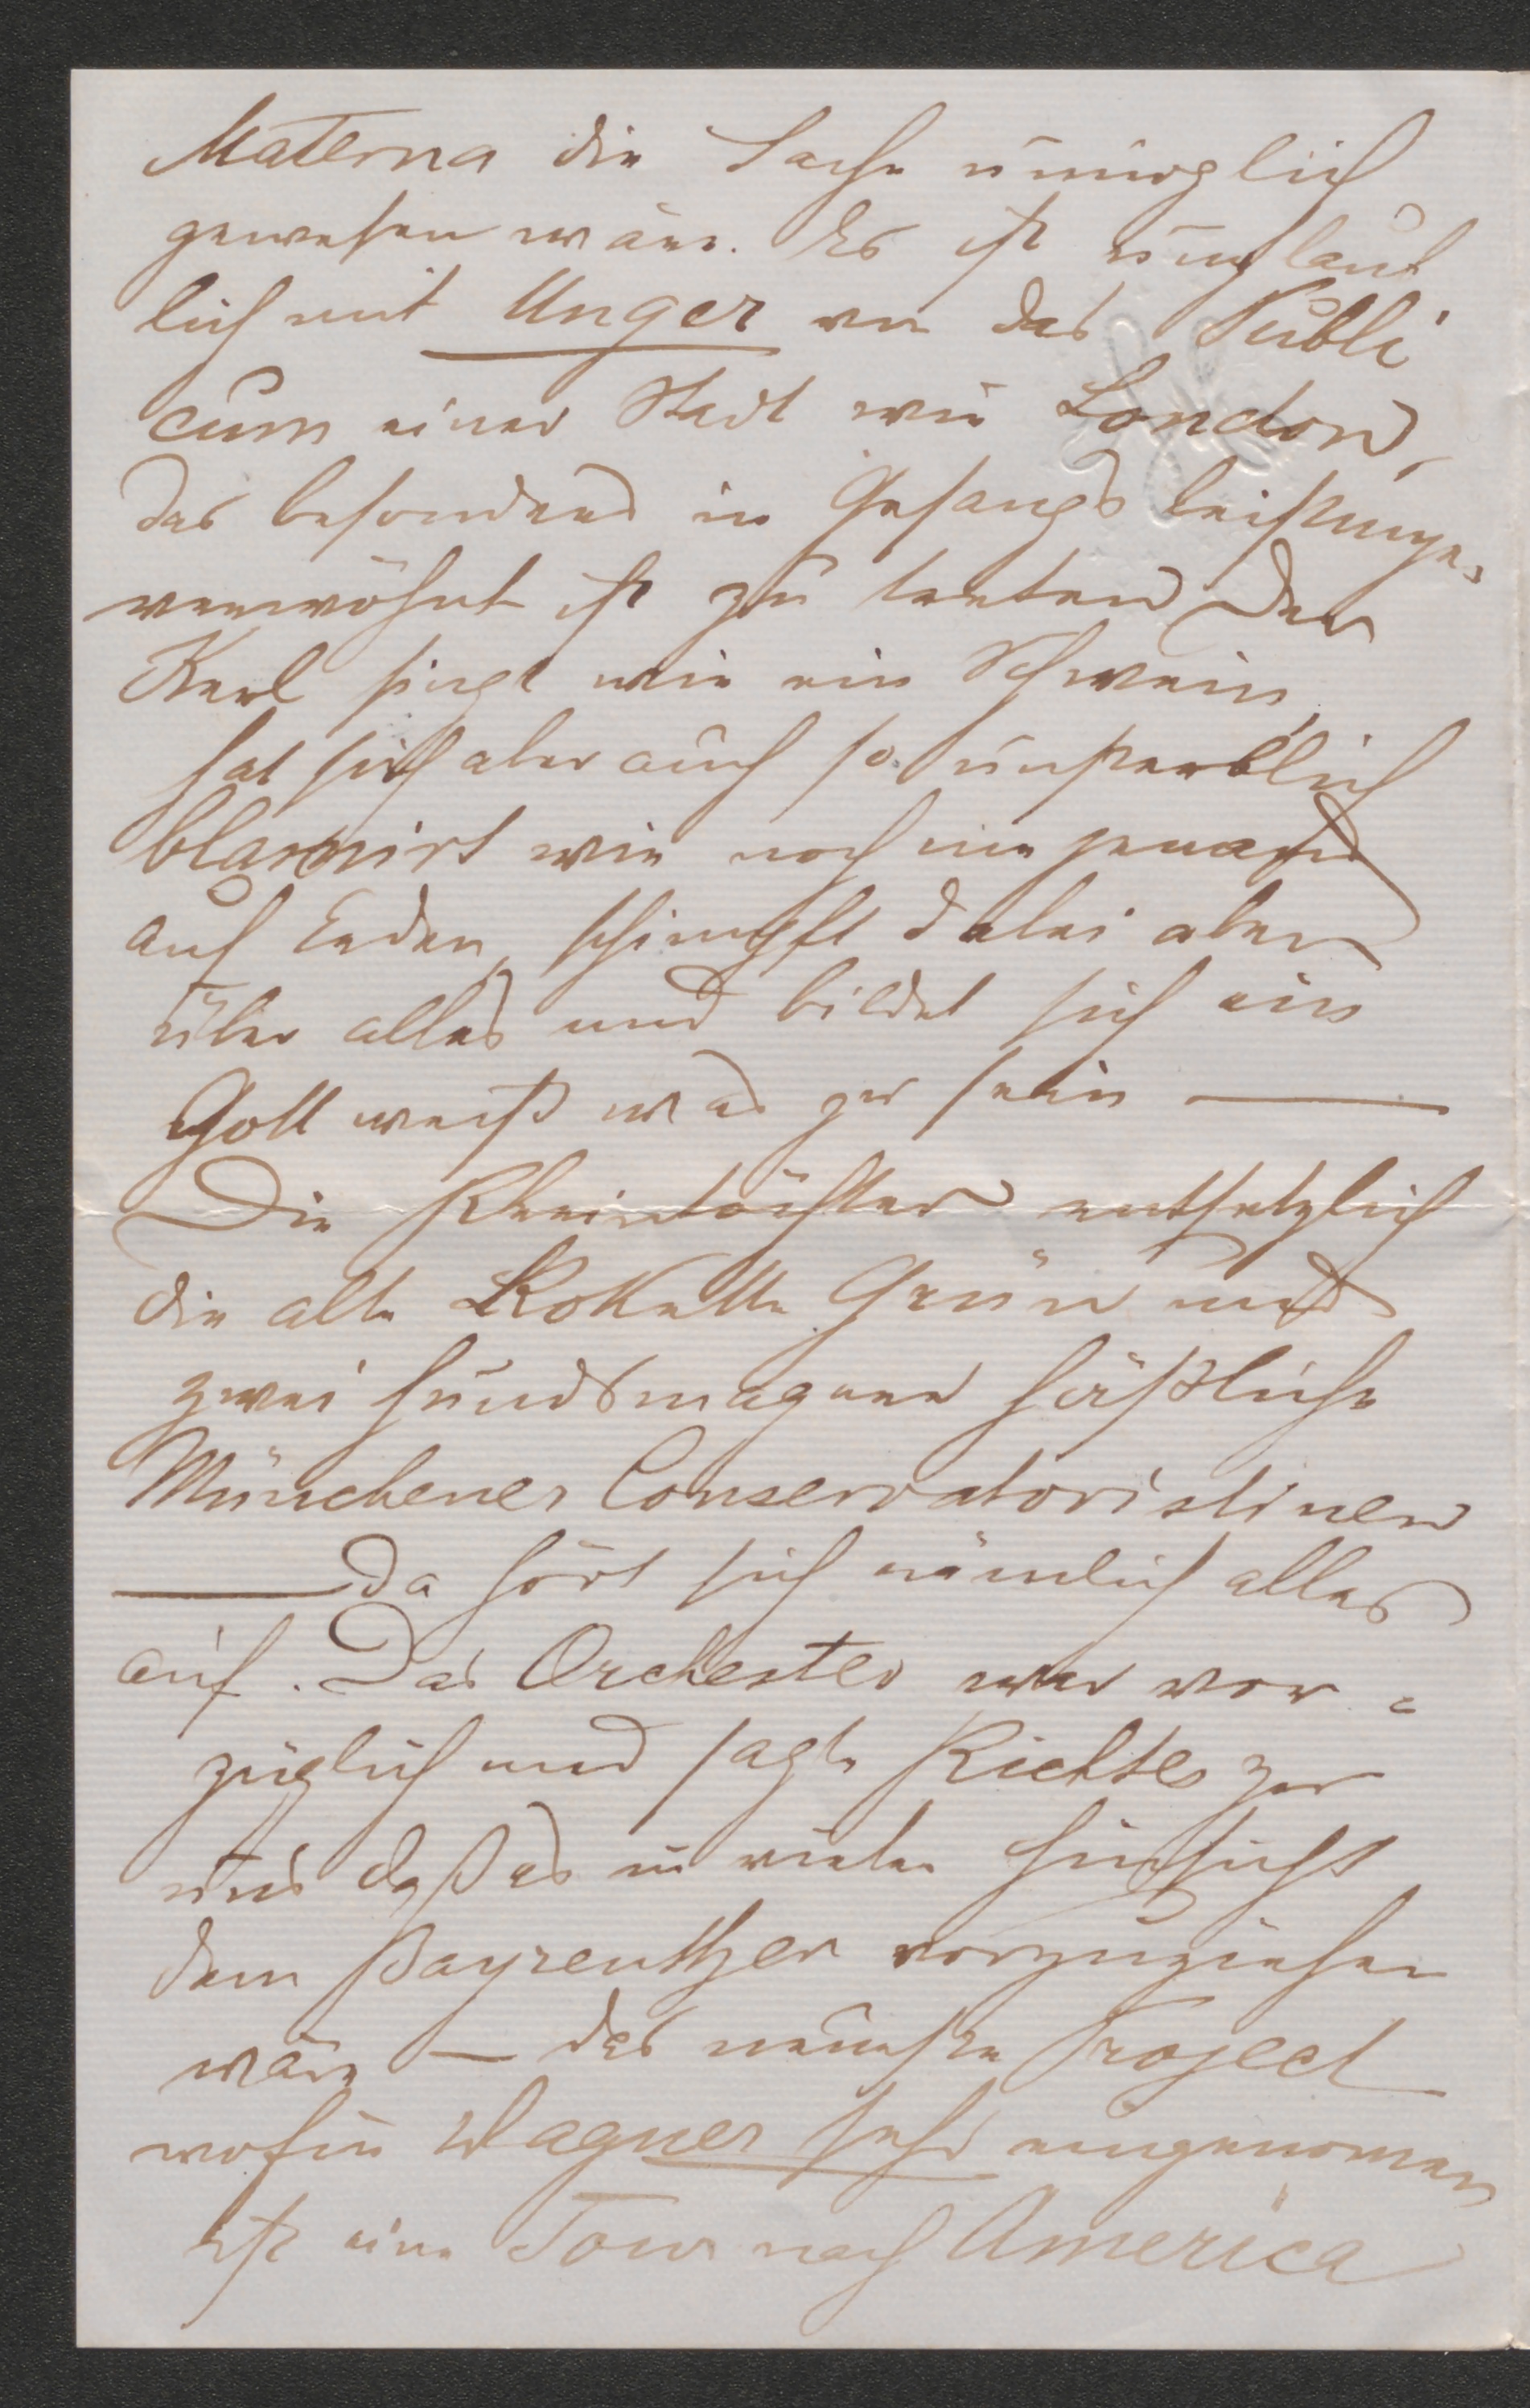 Materna die Sache unmöglich
gewesen wäre. Es ist unglaub
lich mit Unger vor das Publi
cum einer Stadt wie London,
das besonders in Gesangsleistungen
verwöhnt ist zu treten Der
Kerl singt wie ein Schwein,
hat sich aber auch so unsterblich
blamirt wie noch nie jemand
auf Erden, schimpft dabei aber
über alles und bildet sich ein
Gott weiß was zu sein —
Die Rheintöchter entsetzlich
die alte Kokette Grün und
zwei hundsmagere häßliche
Münchener Conservatoristinen
— da hört sich nämlich alles
auf. Das Orchester war vor =
züglich und sagte Richter zu
uns daß es in vieler Hinsicht
dem Bayreuther vorzuziehen
wäre — das neueste Project
wofür Wagner sehr eingenomen
ist eine Tour nach America